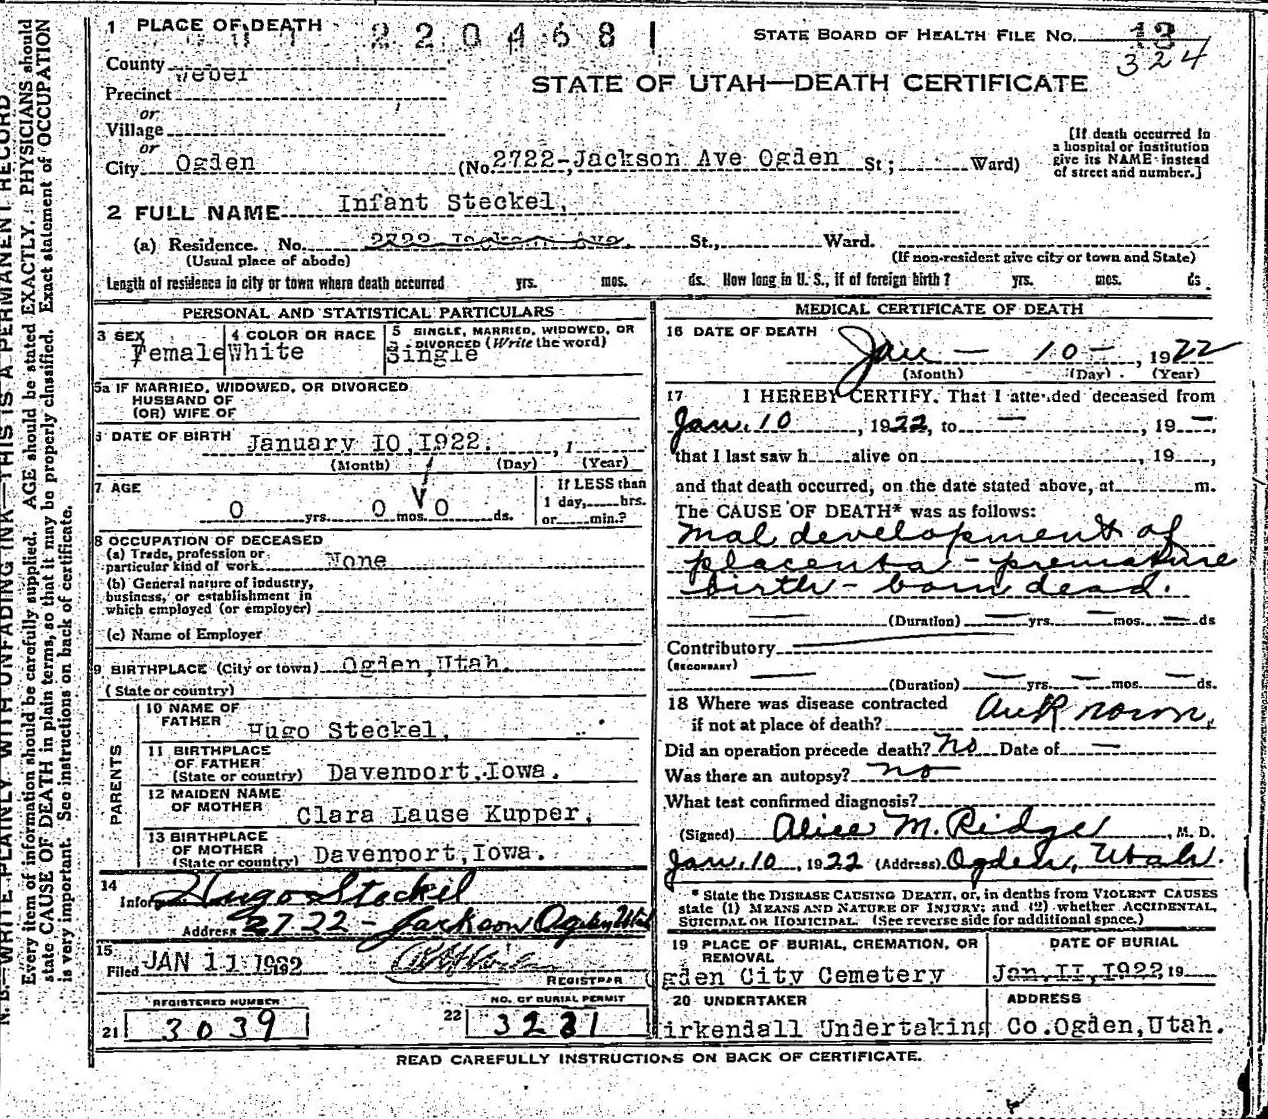 1 PLACE OF DEATH
2204681
STATE BOARD OF HEALTH FILE No. 13
324
County Weber
STATE OF UTAH—DEATH CERTIFICATE
Precinct
or
Village
or
City Ogden (No. 2722-Jackson Ave Ogden St; Ward)
[If death occurred in
a hospital or institution
give its NAME instead
of street and number.]
2 FULL NAME Infant Steckel,
(a) Residence. No. 2722 Jackson Ave. St., Ward.
(Usual place of abode) (If non-resident give city or town and State)
Length of residence in city or town where death occurred yrs. mos. ds. How long in U. S., if of foreign birth? yrs. mos. ds.
PERSONAL AND STATISTICAL PARTICULARS
3 SEX
Female
4 COLOR OR RACE
White
5 SINGLE, MARRIED, WIDOWED, OR
DIVORCED (Write the word)
Single
5a IF MARRIED, WIDOWED, OR DIVORCED
HUSBAND OF
(OR) WIFE OF
DATE OF BIRTH January 10, 1922. , 1
(Month) (Day) (Year)
7 AGE
0 yrs. 0 mos. 0 ds.
If LESS than
1 day, hrs.
or min.?
8 OCCUPATION OF DECEASED
(a) Trade, profession or
particular kind of work None
(b) General nature of industry,
business, or establishment in
which employed (or employer)
(c) Name of Employer
9 BIRTHPLACE (City or town) Ogden, Utah.
(State or country)
PARENTS
10 NAME OF
FATHER Hugo Steckel,
11 BIRTHPLACE
OF FATHER
(State or country) Davenport, Iowa.
12 MAIDEN NAME
OF MOTHER Clara Lause Kupper,
13 BIRTHPLACE
OF MOTHER
(State or country) Davenport, Iowa.
14
Infor Hugo Steckel
Address 2722 - Jackson Ogden Utah
15
Filed JAN 11 1922
REGISTRAR
REGISTERED NUMBER
21 3039
NO. OF BURIAL PERMIT
22 3231
MEDICAL CERTIFICATE OF DEATH
16 DATE OF DEATH
Jan - 10 - , 1922
(Month) (Day) (Year)
17 I HEREBY CERTIFY, That I attended deceased from
Jan. 10 , 1922, to — , 19 —,
that I last saw h alive on , 19 ,
and that death occurred, on the date stated above, at m.
The CAUSE OF DEATH* was as follows:
mal development of
placenta - premature
birth - born dead.
(Duration) — yrs. — mos. — ds
Contributory
(SECONDARY)
(Duration) — yrs. — mos — ds.
18 Where was disease contracted
if not at place of death? unknown,
Did an operation precede death? no Date of —
Was there an autopsy? no
What test confirmed diagnosis?
(Signed) Alice M. Ridge , M. D.
Jan. 10 , 1922 (Address) Ogden, Utah.
* State the DISEASE CAUSING DEATH, or, in deaths from VIOLENT CAUSES
state (1) MEANS AND NATURE OF INJURY; and (2) whether ACCIDENTAL,
SUICIDAL OR HOMICIDAL. (See reverse side for additional space.)
19 PLACE OF BURIAL, CREMATION, OR
REMOVAL
gden City Cemetery
DATE OF BURIAL
Jan. II, 1922 19
20 UNDERTAKER
irkendall Undertaking Co.
ADDRESS
Ogden, Utah.
READ CAREFULLY INSTRUCTIONS ON BACK OF CERTIFICATE.
N. B.—WRITE PLAINLY WITH UNFADING INK—THIS IS A PERMANENT RECORD
Every item of information should be carefully supplied. AGE should be stated EXACTLY. PHYSICIANS should
state CAUSE OF DEATH in plain terms, so that it may be properly classified. Exact statement of OCCUPATION
is very important. See instructions on back of certificate.